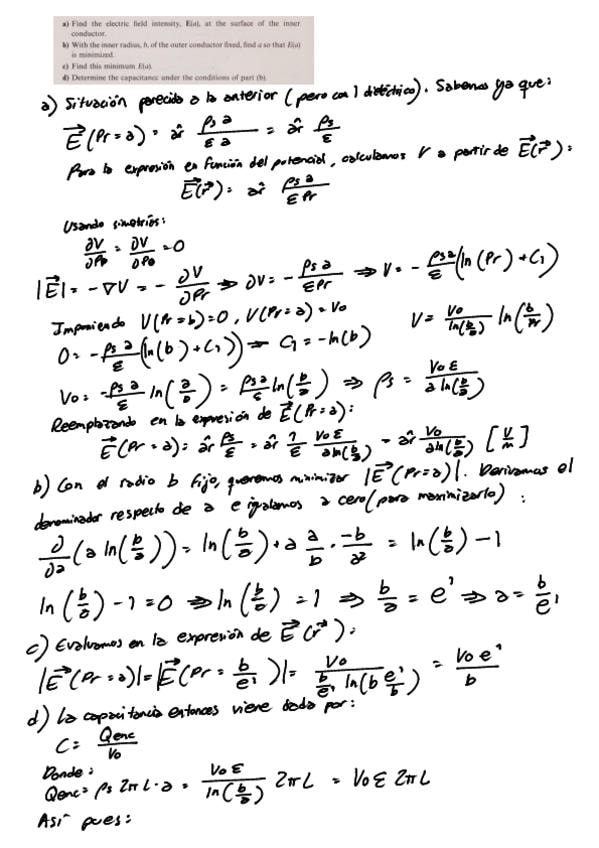 a) Find the electric field intensity, E(a), at the surface of the inner
conductor.
b) With the inner radius, b, of the outer conductor fixed, find a so that E(a)
is minimized.
c) Find this minimum E(a).
d) Determine the capacitance under the conditions of part (b).
a) Situación parecida a la anterior (pero con 1 dieléctrico). Sabemos ya que:
E⃗(Pr=a) = âr ρs a / ε a = âr ρs / ε
Para la expresión en función del potencial, calculamos V a partir de E⃗(r⃗):
E⃗(r⃗) = âr ρs a / ε Pr
Usando simetrías:
∂V/∂Pθ = ∂V/∂Pø = 0
|E⃗| = -∇V = - ∂V/∂Pr ⇒ ∂V = - ρs a / ε Pr ⇒ V = - ρs a / ε (ln(Pr) + C₁)
Imponiendo V(Pr=b)=0, V(Pr=a)=Vo V = Vo / ln(b/a) ln(b/Pr)
0 = - ρs a / ε (ln(b) + C₁)) ⇒ C₁ = -ln(b)
Vo = - ρs a / ε ln(a/b) = ρs a / ε ln(b/a) ⇒ ρs = Vo ε / a ln(b/a)
Reemplazando en la expresión de E⃗(Pr=a):
E⃗(Pr=a) = âr ρs / ε = âr 1/ε Vo ε / a ln(b/a) = âr Vo / a ln(b/a) [V/m]
b) Con el radio b fijo, queremos minimizar |E⃗(Pr=a)|. Derivamos el
denominador respecto de a e igualamos a cero (para maximizarlo):
∂/∂a (a ln(b/a)) = ln(b/a) + a a/b · -b/a² = ln(b/a) - 1
ln(b/a) - 1 = 0 ⇒ ln(b/a) = 1 ⇒ b/a = e¹ ⇒ a = b/e¹
c) Evaluamos en la expresión de E⃗(r⃗):
|E⃗(Pr=a)| = |E⃗(Pr = b/e¹)| = Vo / b/e¹ ln(b e¹/b) = Vo e¹ / b
d) La capacitancia entonces viene dada por:
C = Qenc / Vo
Donde:
Qenc = ρs 2π L · a = Vo ε / ln(b/a) 2π L = Vo ε 2π L
Así pues: